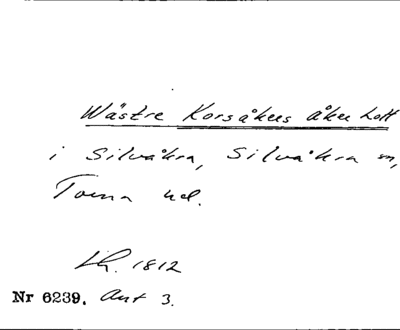 Wästre Korsåkers åker lott
i Silvåkra, Silvåkra sn,
Torna hd.
Lh. 1812
Nr 6239. Ant 3.